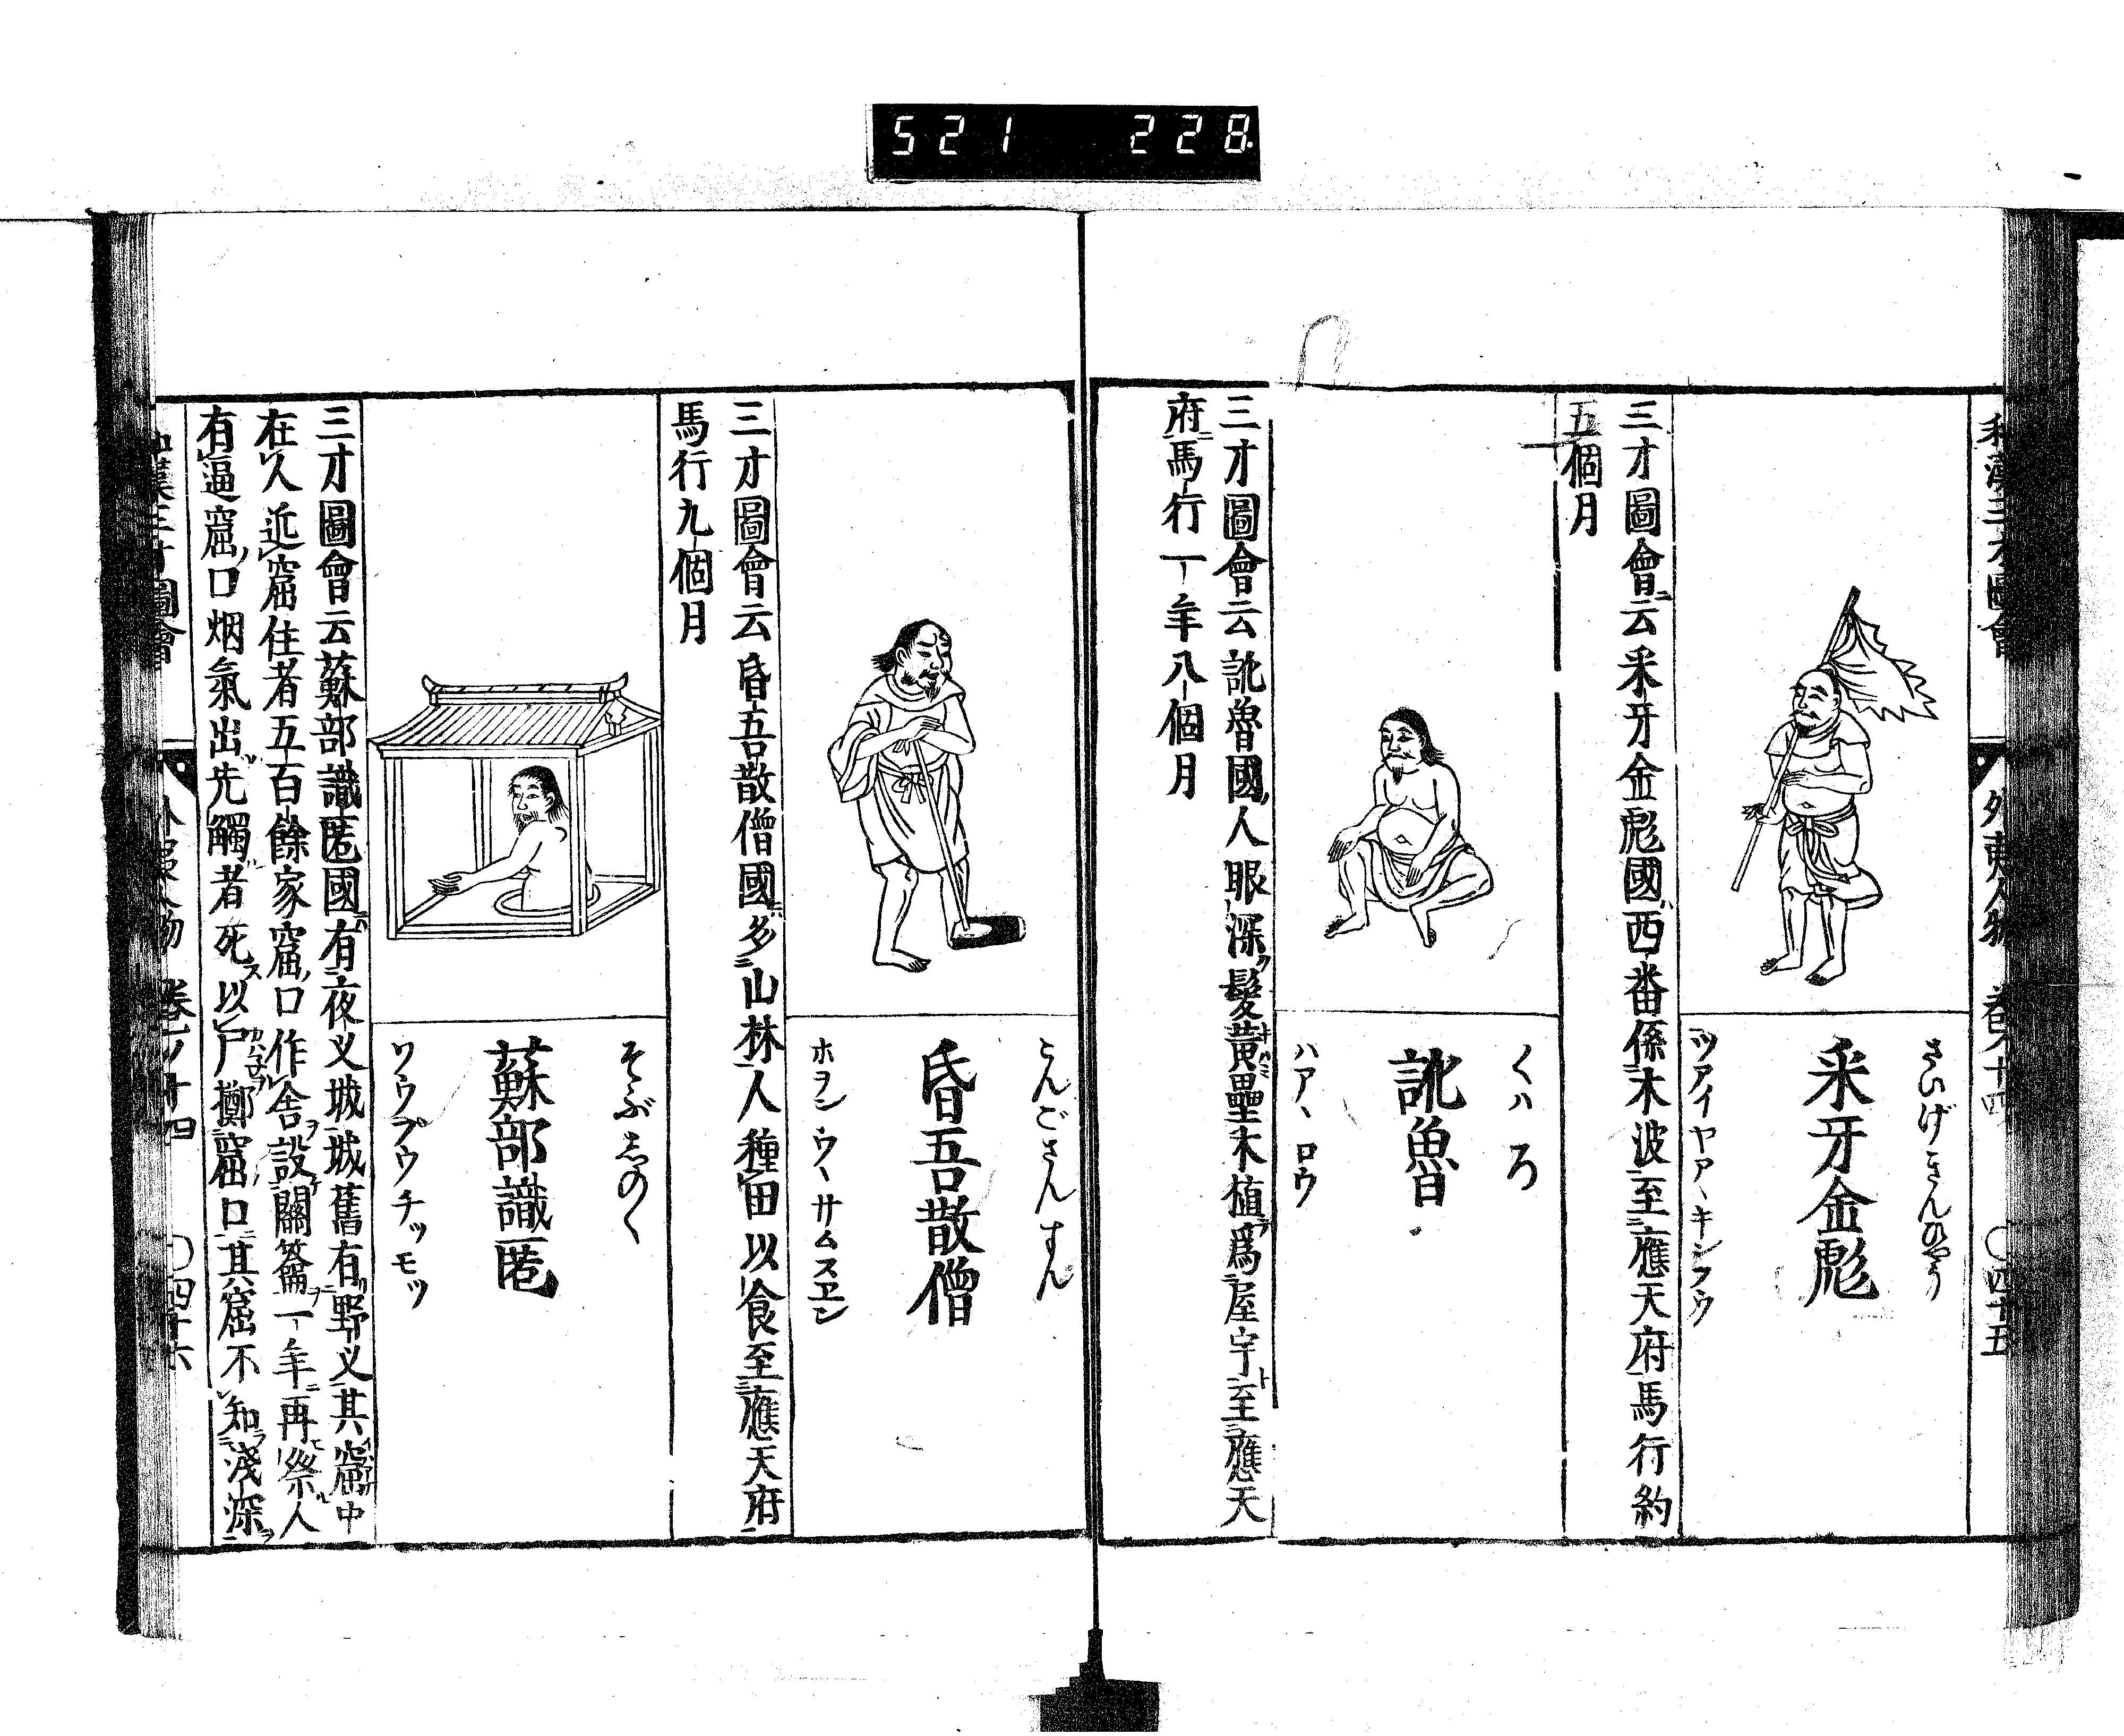 521 228
和漢三才圖會 外夷人物 卷十四 ○四十五
さいげきんひやう
采牙金彪
ツアイヤアヽキンフウ
三才圖會云采牙金彪國西番係木波至應天府馬行約
五個月
くハろ
訛魯
ハアヽロウ
三才圖會云訛魯國人眼深髮黃壘木植爲屋宇至應天
府馬行一年八個月
こんごさんすん
昏吾散僧
ホヲンウヽサムスヱン
三才圖會云昏吾散僧國多山林人種田以食至應天府
馬行九個月
そぶしのく
蘇部識匿
ソウブウチツモツ
三才圖會云蘇部識匿國有夜义城城舊有野义其窟中
在人近窟住者五百餘家窟口作舍設關籥一年再祭人
有逼窟口烟氣出先觸者死以尸擲窟口其窟不知淺深
和漢三才圖會 外夷人物 卷ノ十四 ○四十六